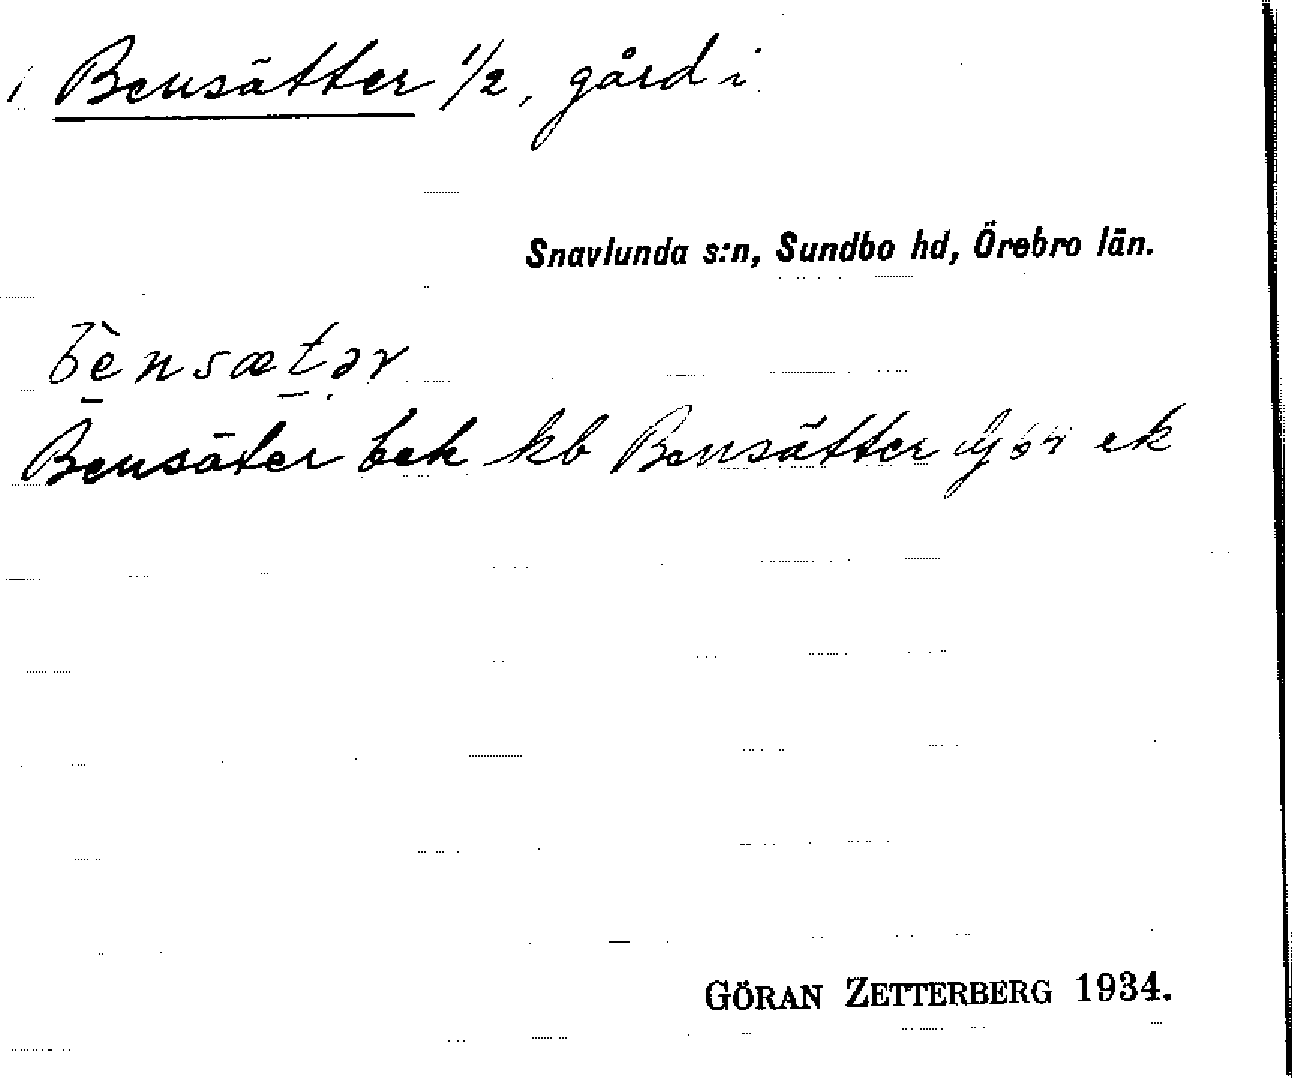 Bensätter 1/2, gård i
Snavlunda s:n, Sundbo hd, Örebro län.
bènsætər
Bensäter bek kb Bensätter ek
GÖRAN ZETTERBERG 1934.